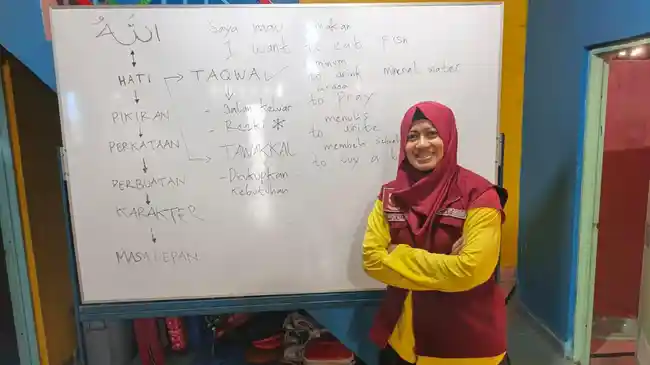 الله
HATI
PIKIRAN
PERKATAAN
PERBUATAN
KARAKTER
MASA DEPAN
TAQWA
- Jalan keluar
- Rezki *
TAWAKKAL
- Dicukupkan
kebutuhan
Saya mau makan
I want to eat fish
minum
to drink mineral water
to pray
menulis
to write
membeli
to buy a